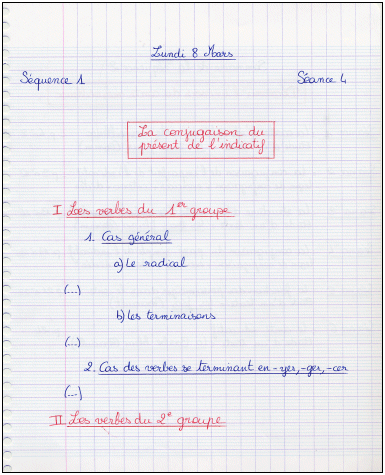 Lundi 8 Mars
Séquence 1 Séance 4
La conjugaison du
présent de l'indicatif
I Les verbes du 1er groupe
1. Cas général
a) Le radical
(...)
b) Les terminaisons
(...)
2. Cas des verbes se terminant en -yer, -ger, -cer
(...)
II Les verbes du 2e groupe